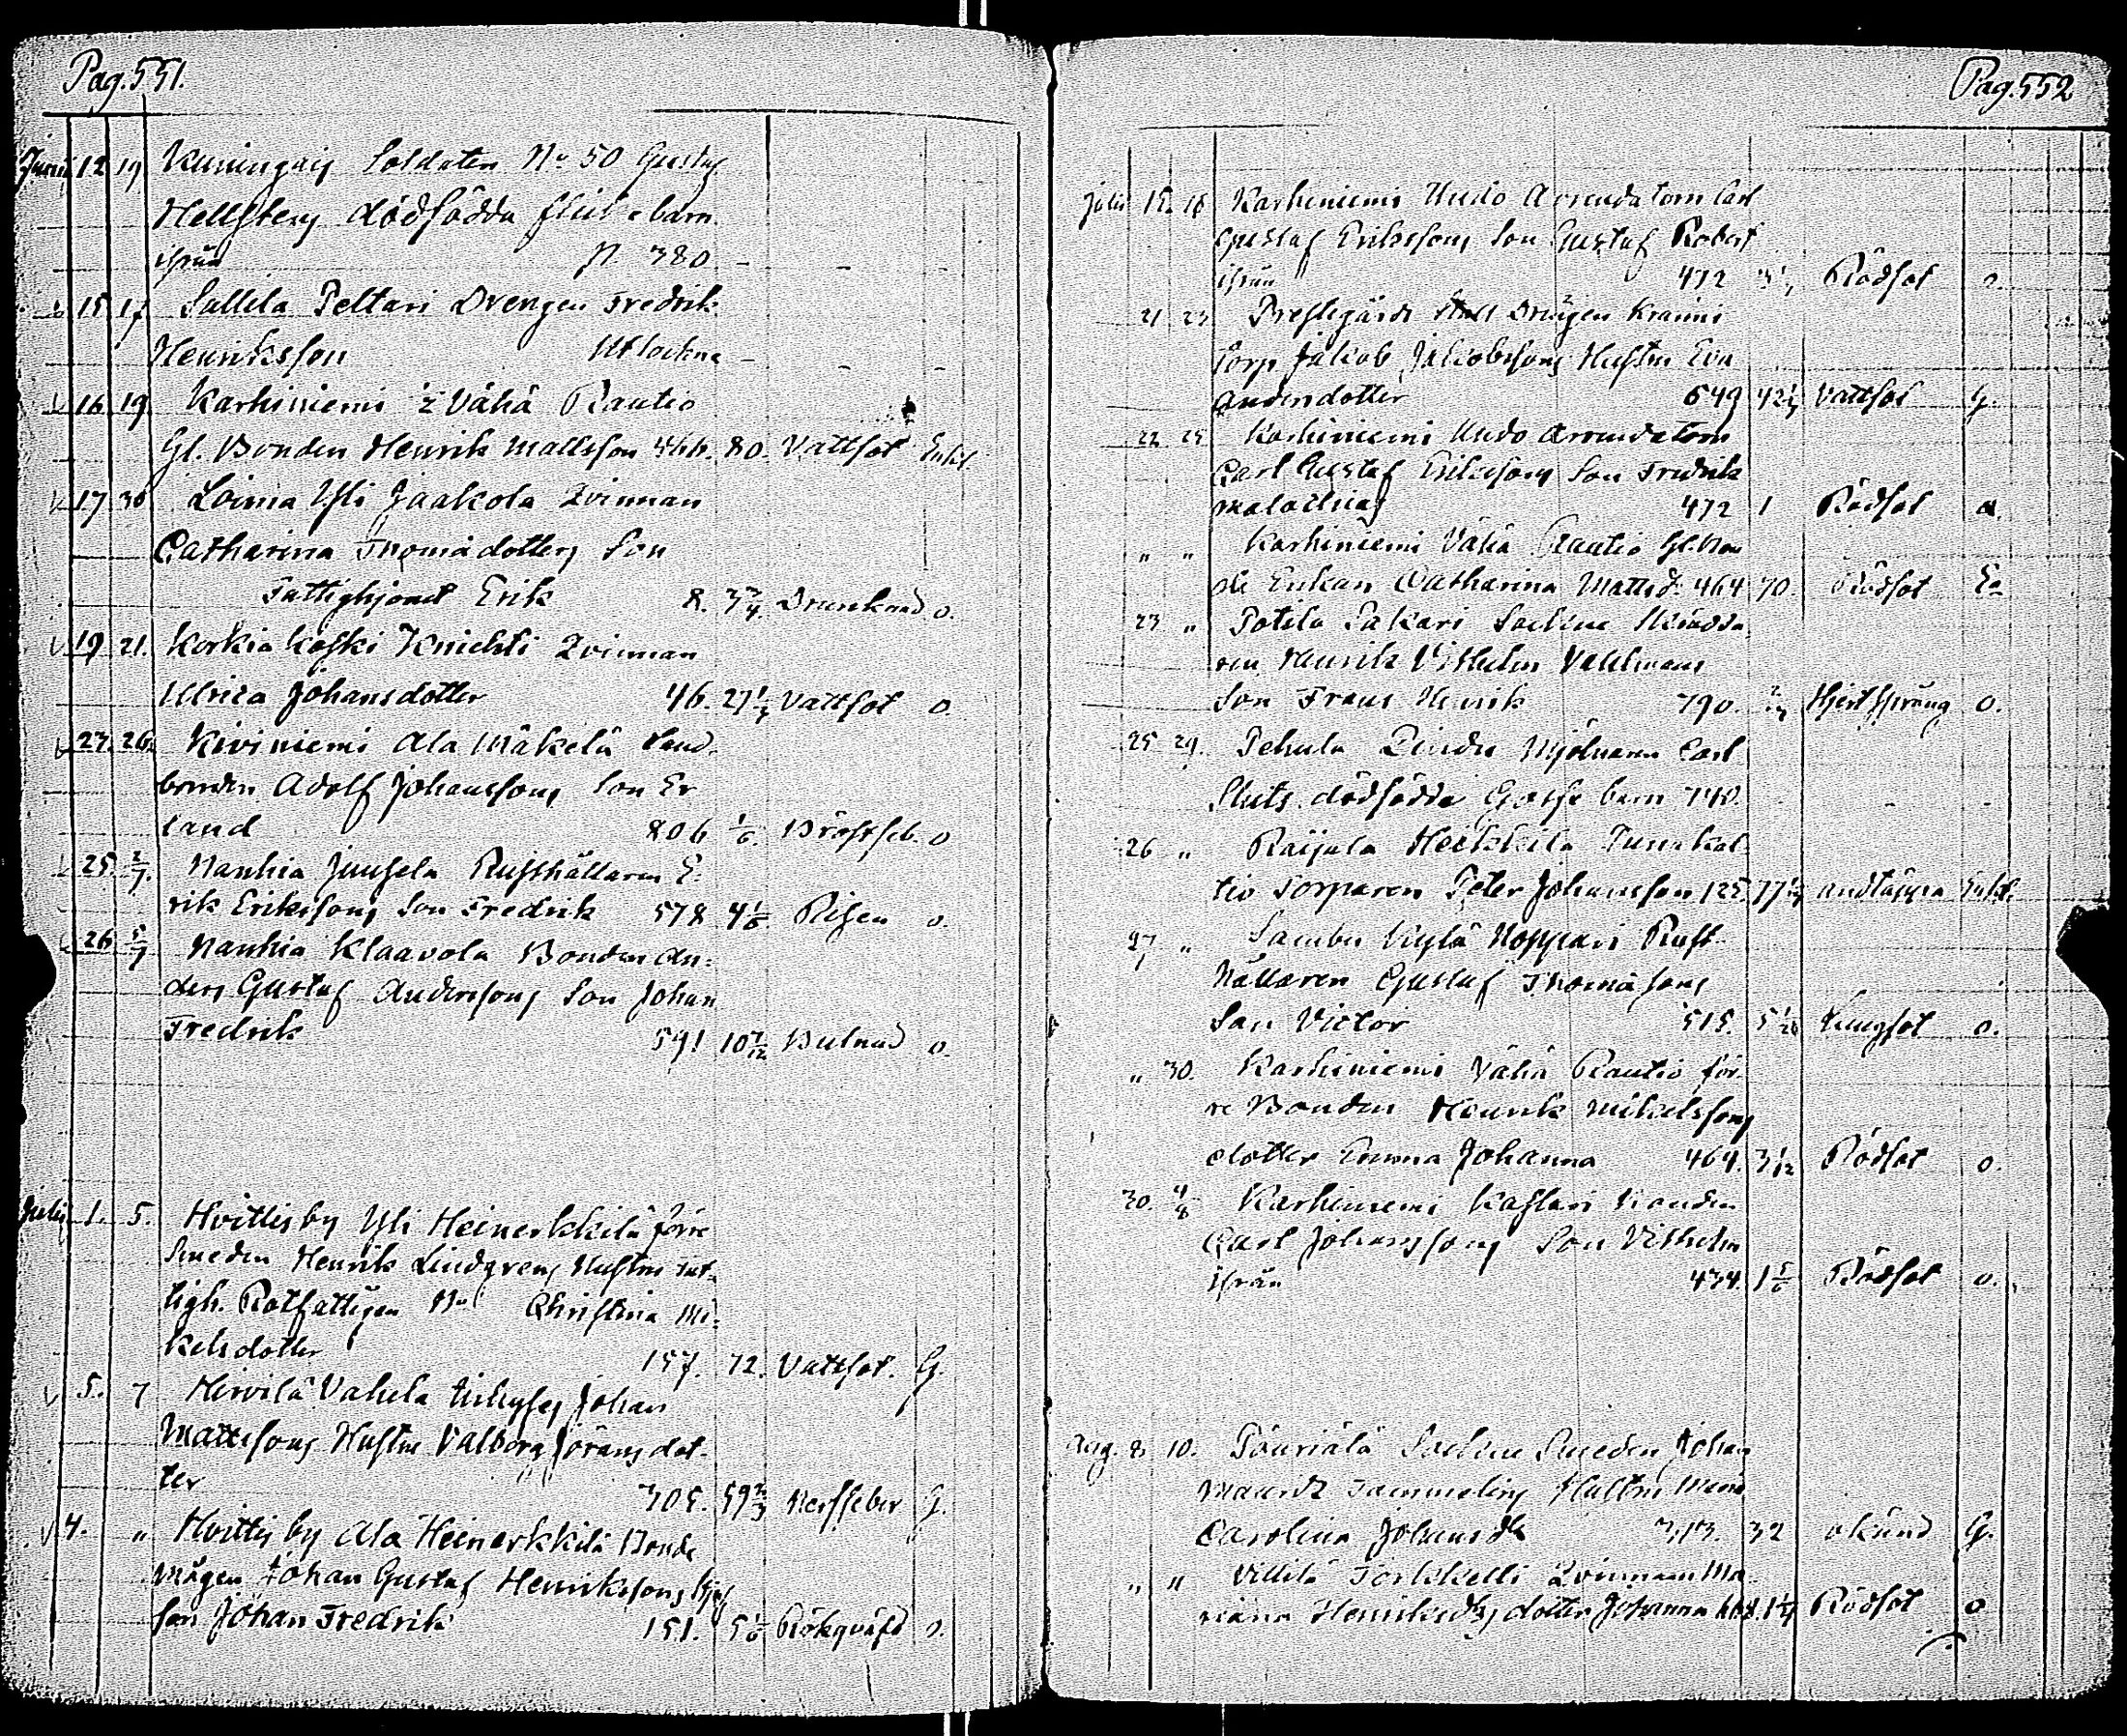 Pag. 551.
Junii 12 19 Kuningais Soldaten No 50 Gustaf
Hellstens dödfödda flick-barn
ifrån N. 380 - - -
15 17 Sallila Peltari Drengen Fredrik
Henriksson - - -
16 19 Karhiniemi Vähä Rautio
Gl. Bonden Henrik Mattsson 464. 80. Vattsot Enkl.
17 30 Loima Yli Jaakola Qvinnan
Catharina Thomädotters Son
Fattighjonet Erik 8. 3 3/4. Drunknad o.
19 21. Korkiakoski Knichti Qvinnan
Ulrica Johansdotter 46. 27 Vattsot o.
23. 26. Kiviniemi Ala Mäkelä Land-
bonden Adolf Johanssons Son Er
land 806 1/6. Bröstfeb. o
25. 2/7. Nanhia Juusela Rusthållaren E-
rik Erikssons Son Fredrik 578 4 1/6 Risen o.
26 5/7 Nanhia Klaavola Bonden An-
ders Gustaf Anderssons Son Johan
Fredrik 591 10 7/12 Bulnad o.
Julii 1. 5. Hvittisby Yli Heinerkkilä förre
Smeden Henrik Lindgrens Hustru Fat-
tigh. Rotfattigen Christina Mi-
kelsdotter 157. 72. Vattsot. G.
5. 7 Hirvilä Vahela Inhyses Johan
Mattssons Hustru Valborg Jöransdot-
ter 305. 59 Nerffeber G.
4. " Hvittisby Ala Heinerkkilä Bonde
Mågen Johan Gustaf Henrikssons
son Johan Fredrik 151. 5 1/6 Rökqväfd o.
Pag. 552
Julii 15. 18 Karhiniemi Uudo Arrendatorn Carl
Gustaf Erikssons Son Gustaf Robert
ifrån 472 Rödsot o.
21 23 Prestegårds Drängen Kranni
Torp Jakob Jakobssons Hustru Eva
Andersdotter 549 42 Vattsot G.
22 25 Karhiniemi Uudo Arrendatorn
Carl Gustaf Erikssons Son Fredrik
Malachias 472 1 Rödsot o.
" " Karhiniemi Vähä Rautio Gl. Bon
de Enkan Catharina Mattsd. 464 70. Rödsot E-
23 " Potila Pakari Sockne Skrädda
ren Henrik Vilhelm Vahlmans
Son Frans Henrik 790. Hjertspräng o.
25 29. Pehula Mjölnaren Carl
Sluts dödfödda Gosse barn 740. - -
26 " Raijala Heikkilä
tio Torparen Peter Johansson 125. 77 Andtäppa Enkl.
27 " Sambu Kylä Noppari Rust-
hållaren Gustaf Thomäsons
Son Victor 515. 5 Lungsot o.
" 30. Karhiniemi Vähä Rautio för-
re Bonden Henrik Mikelssons
dotter Emma Johanna 464. 3 1/12 Rödsot o.
30. 4/8 Karhiniemi Kastari Bonden
Carl Johanssons Son Vilhelm
ifrån 474. 1 5/6 Rödsot o.
Aug. 8 10. Pöuriälä Sockne Smeden Johan
Maurits Tammelins Hustru
Carolina Johansdr 313. 32 okänd G.
" " Villilä Törkkelli Qvinnan Ma
riana Henriksdrs dotter Johanna Rödsot o